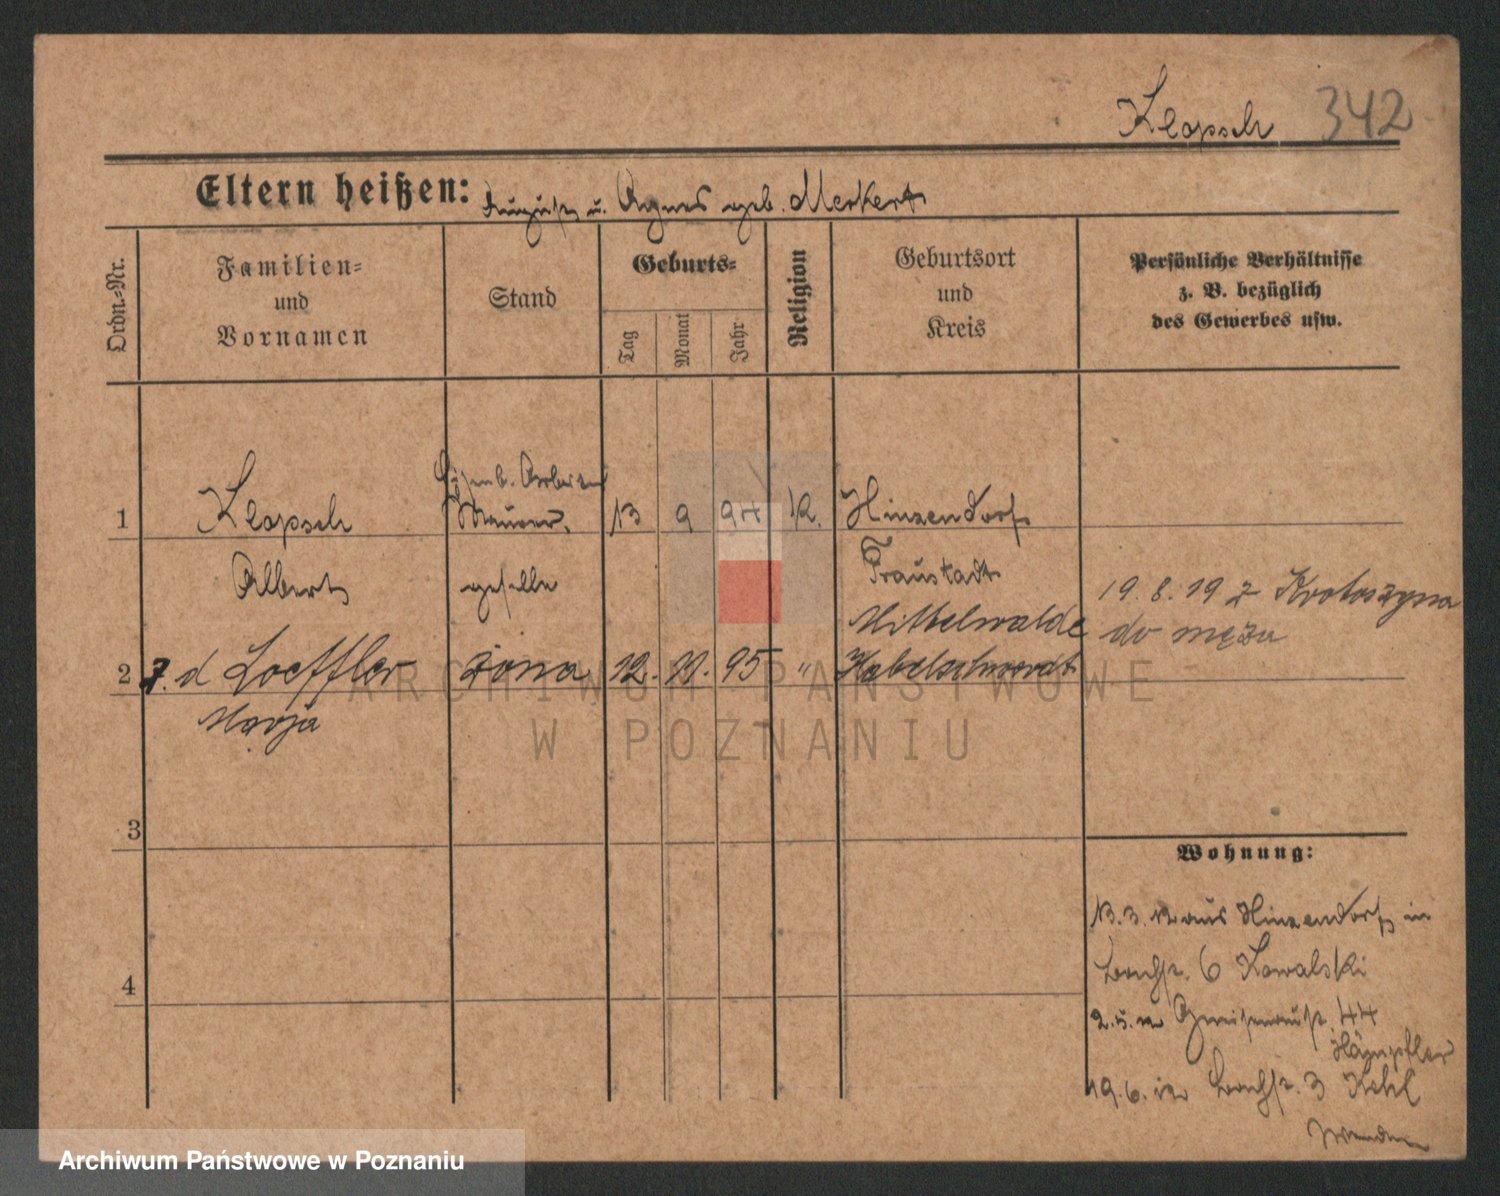 Klopsch 342
Eltern heißen: August u. Agnes geb. Merkert
Ordn.-Nr.
Familien-
und
Vornamen
Stand
Geburts-
Tag
Monat
Jahr
Religion
Geburtsort
und
Kreis
Persönliche Verhältnisse
z. B. bezüglich
des Gewerbes usw.
Arbeiter
1 Klopsch Maurer 13 9 94 K. Hinzendorf
Albert geselle Fraustadt
19.8.19 z Krotoszyna
Mittelwalde
do męża
2 z. d Loeffler żona 12. 11. 95 " Habelschwerdt
Marja
ARCHIWUM PAŃSTWOWE
W POZNANIU
3
Wohnung:
13.3.12 aus Hinzendorf in
6 Kowalski
4
2.5.12 Gneisenaustr. 44
Hämpfler
19.6.12 3 Kehl
Archiwum Państwowe w Poznaniu